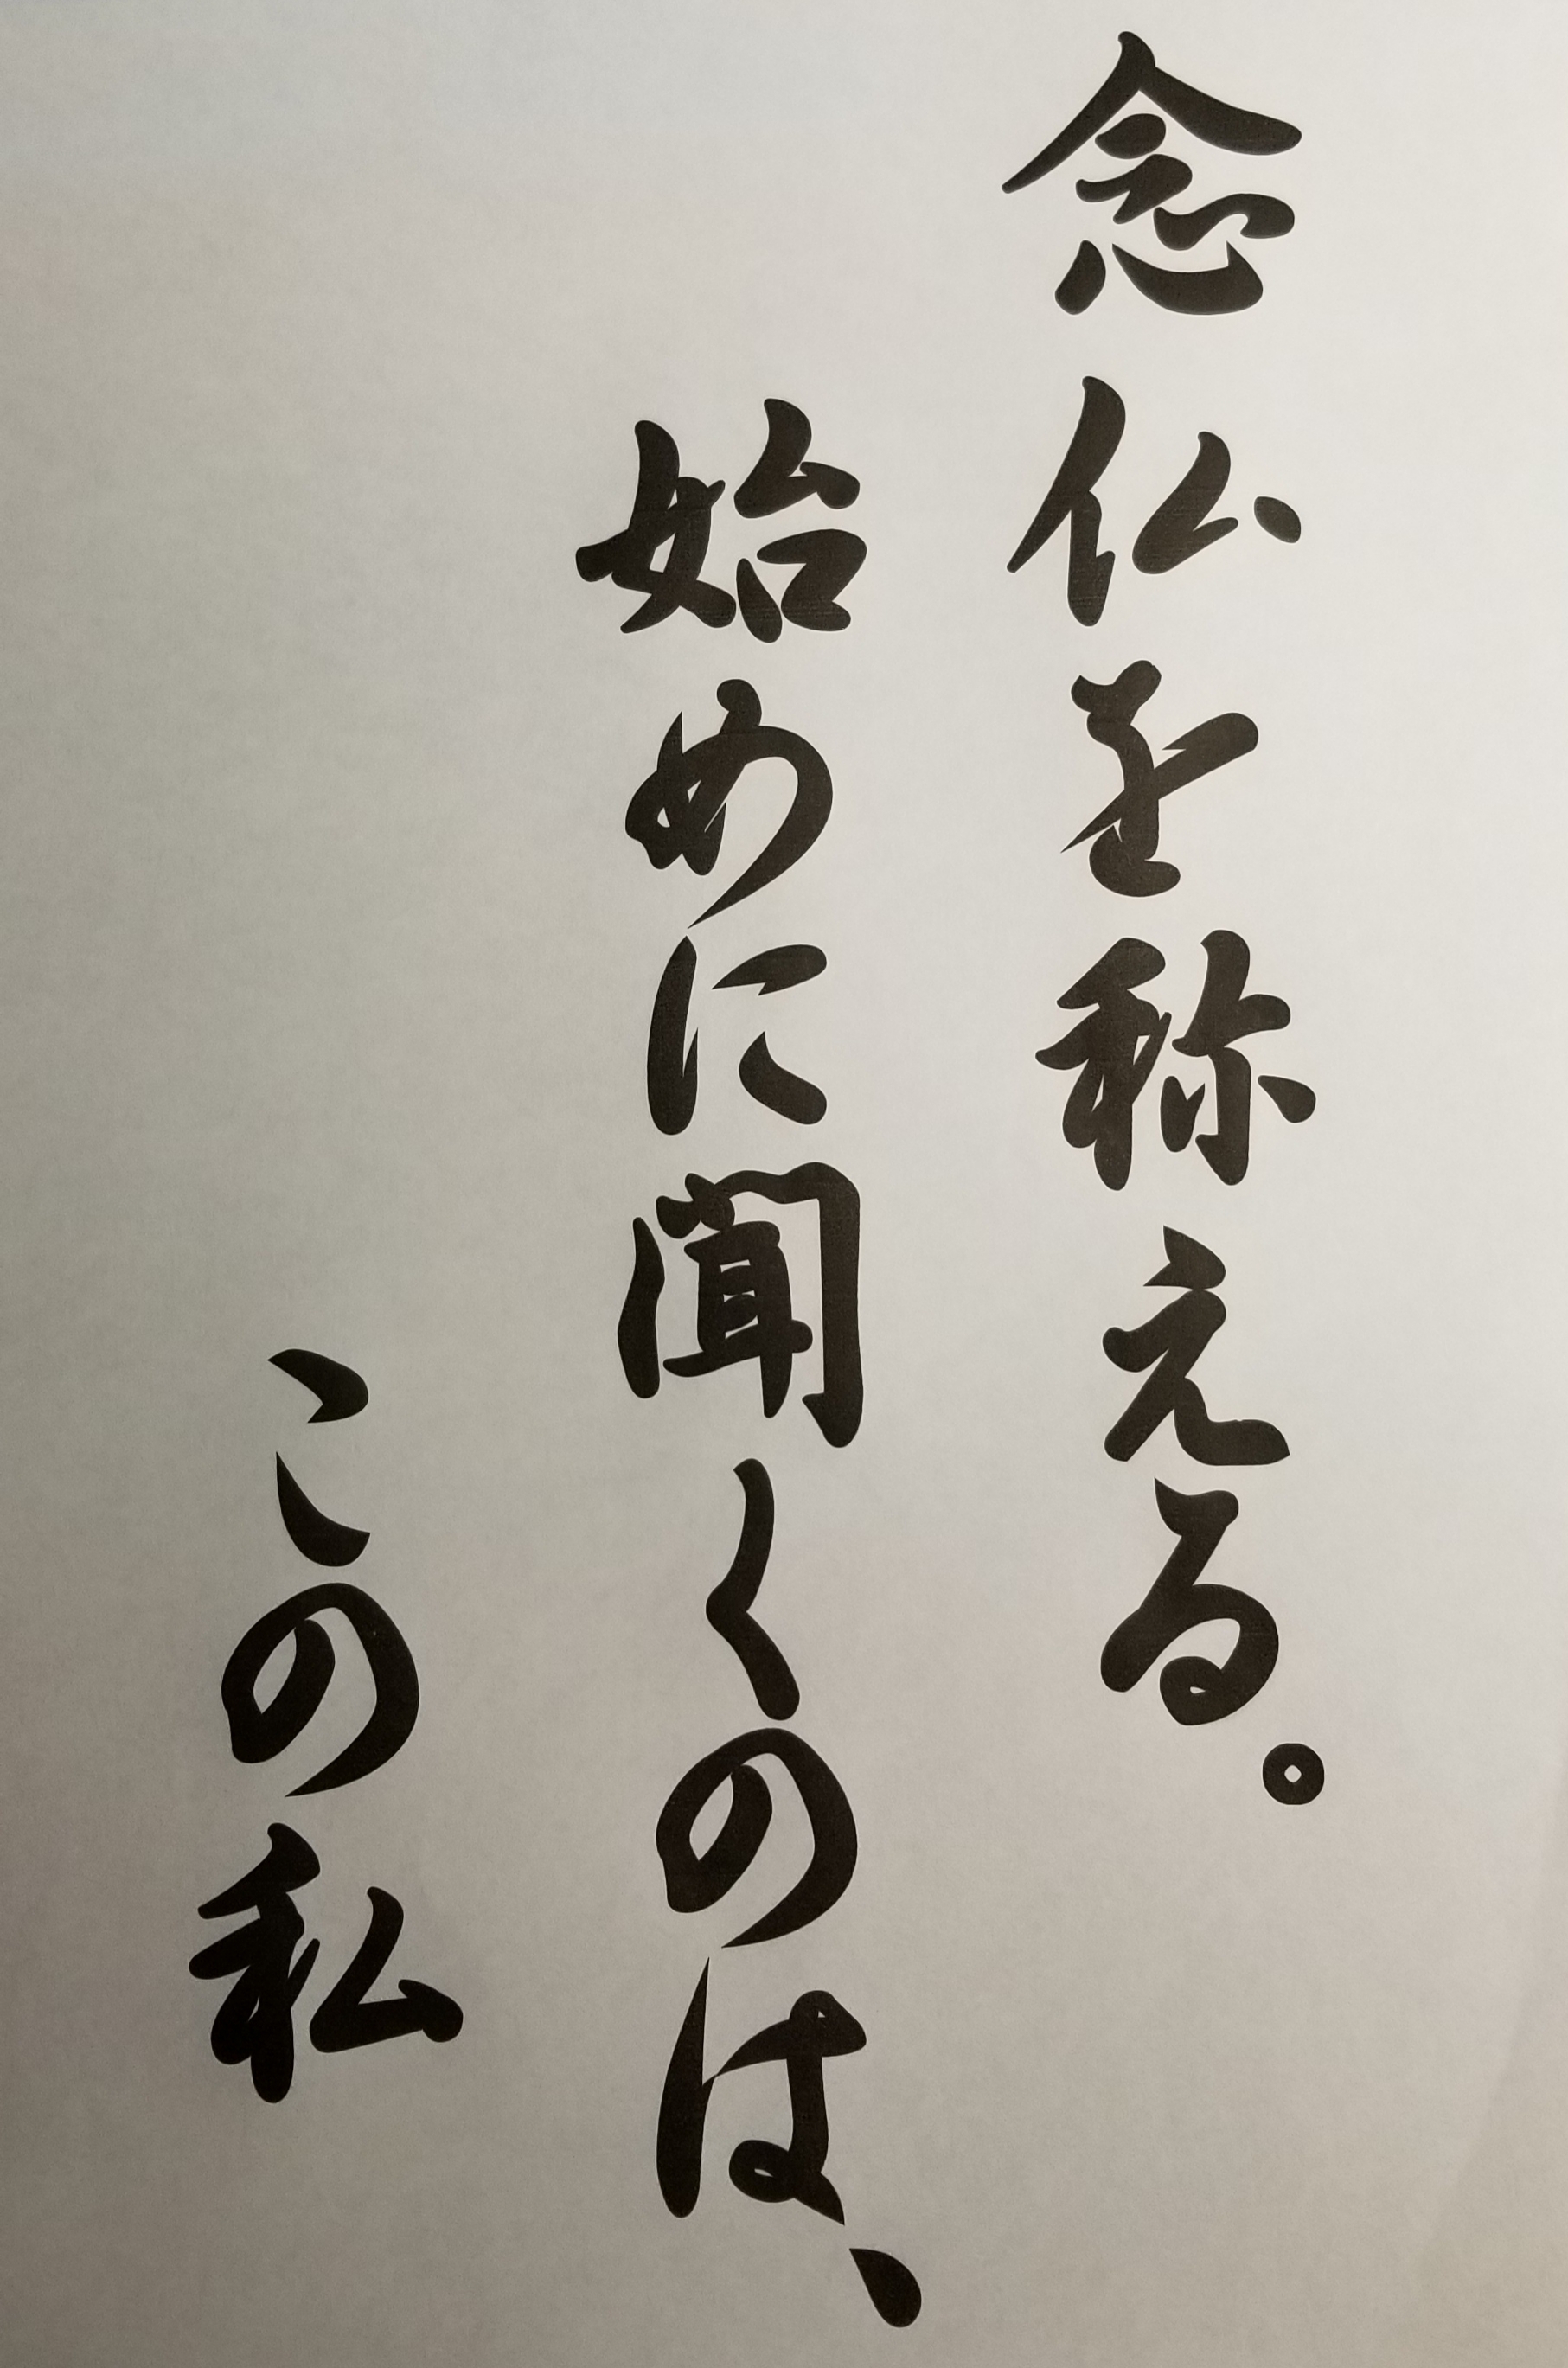 念仏を称える。
始めに聞くのは、
この私